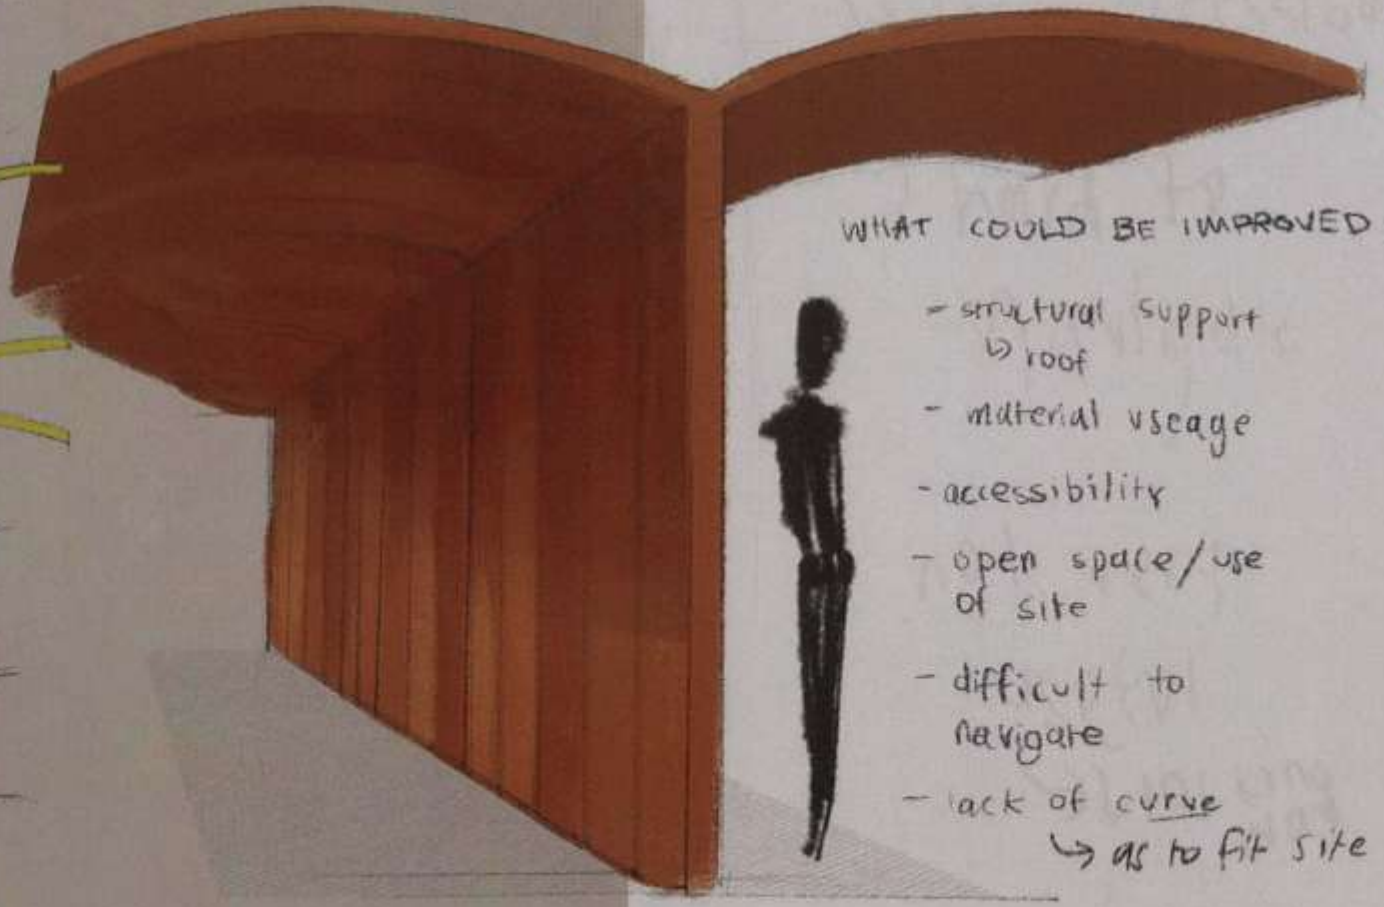 WHAT COULD BE IMPROVED
- structural support
↳ roof
- material useage
- accessibility
- open space/use
of site
- difficult to
navigate
- lack of curve
↳ as to fit site